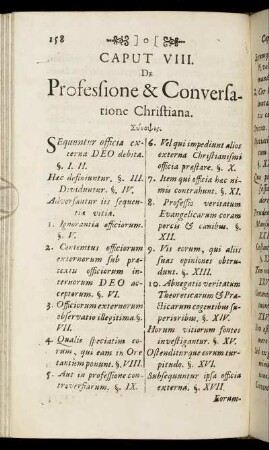 158
]o[
CAPUT VIII.
DE
Professione & Conversa-
tione Christiana.
Σύνοψις.
SEquuntur officia ex-
terna DEO debita.
§. I. II.
Hæc definiuntur. §. III.
Dividuntur. §. IV.
Adversantur iis sequen-
tia vitia.
1. Ignorantia officiorum.
§. V.
2. Contemtus officiorum
externorum sub præ-
textu officiorum in-
ternorum DEO ac-
ceptorum. §. VI.
3. Officiorum externorum
observatio illegitima. §.
VII.
4. Qualis spectatim eo-
rum, qui eam in Os-
tantium ponunt. §. VIII.
5. Aut in professione con-
troversiarum. §. IX
6. Vel qui impediunt alios
externa Christianismi
officia præstare. §. X.
7. Item qui officia hæc ni-
mis contrahunt. §. XI.
8. Professio veritatum
Evangelicarum coram
porcis & canibus. §.
XII.
9. Vis eorum, qui aliis
suas opiniones obtru-
dunt. §. XIII.
10. Abnegatio veritatum
Theoreticarum & Pra-
cticarum exgentibus su-
perioribus. §. XIV.
Horum vitiorum fontes
investigantur. §. XV.
Ostenditurque eorum tur-
pitudo. §. XVI.
Subsequuntur ipsa officia
externa. §. XVII
Eorum-